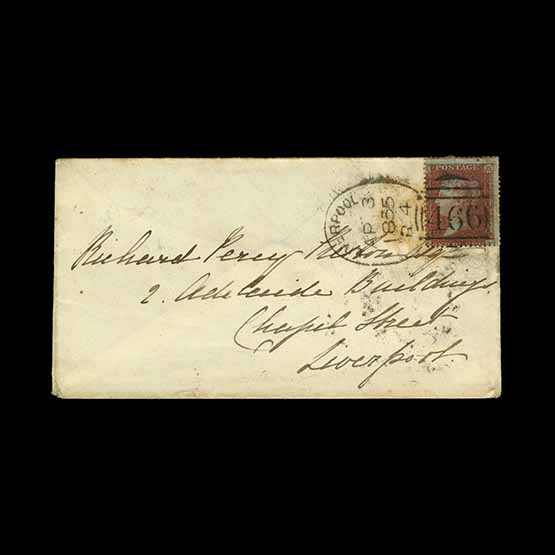 POSTAGE
LIVERPOOL
AP 3
1855
466
Richard Percy
2. Adelaide Buildings
Chapel Street
Liverpool.